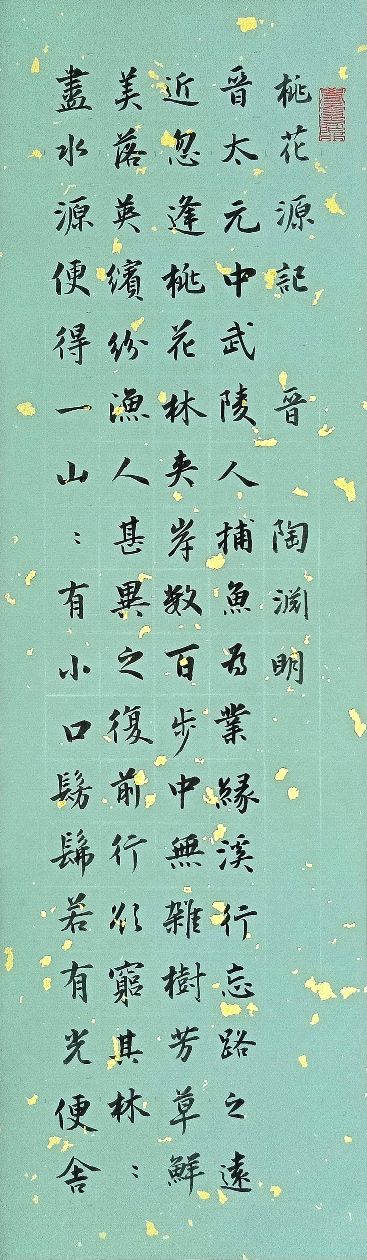 桃花源記 晉 陶淵明
晉太元中武陵人捕魚為業緣溪行忘路之遠
近忽逢桃花林夾岸數百步中無雜樹芳草鮮
美落英繽紛漁人甚異之復前行欲窮其林：
盡水源便得一山：有小口髣髴若有光便舍